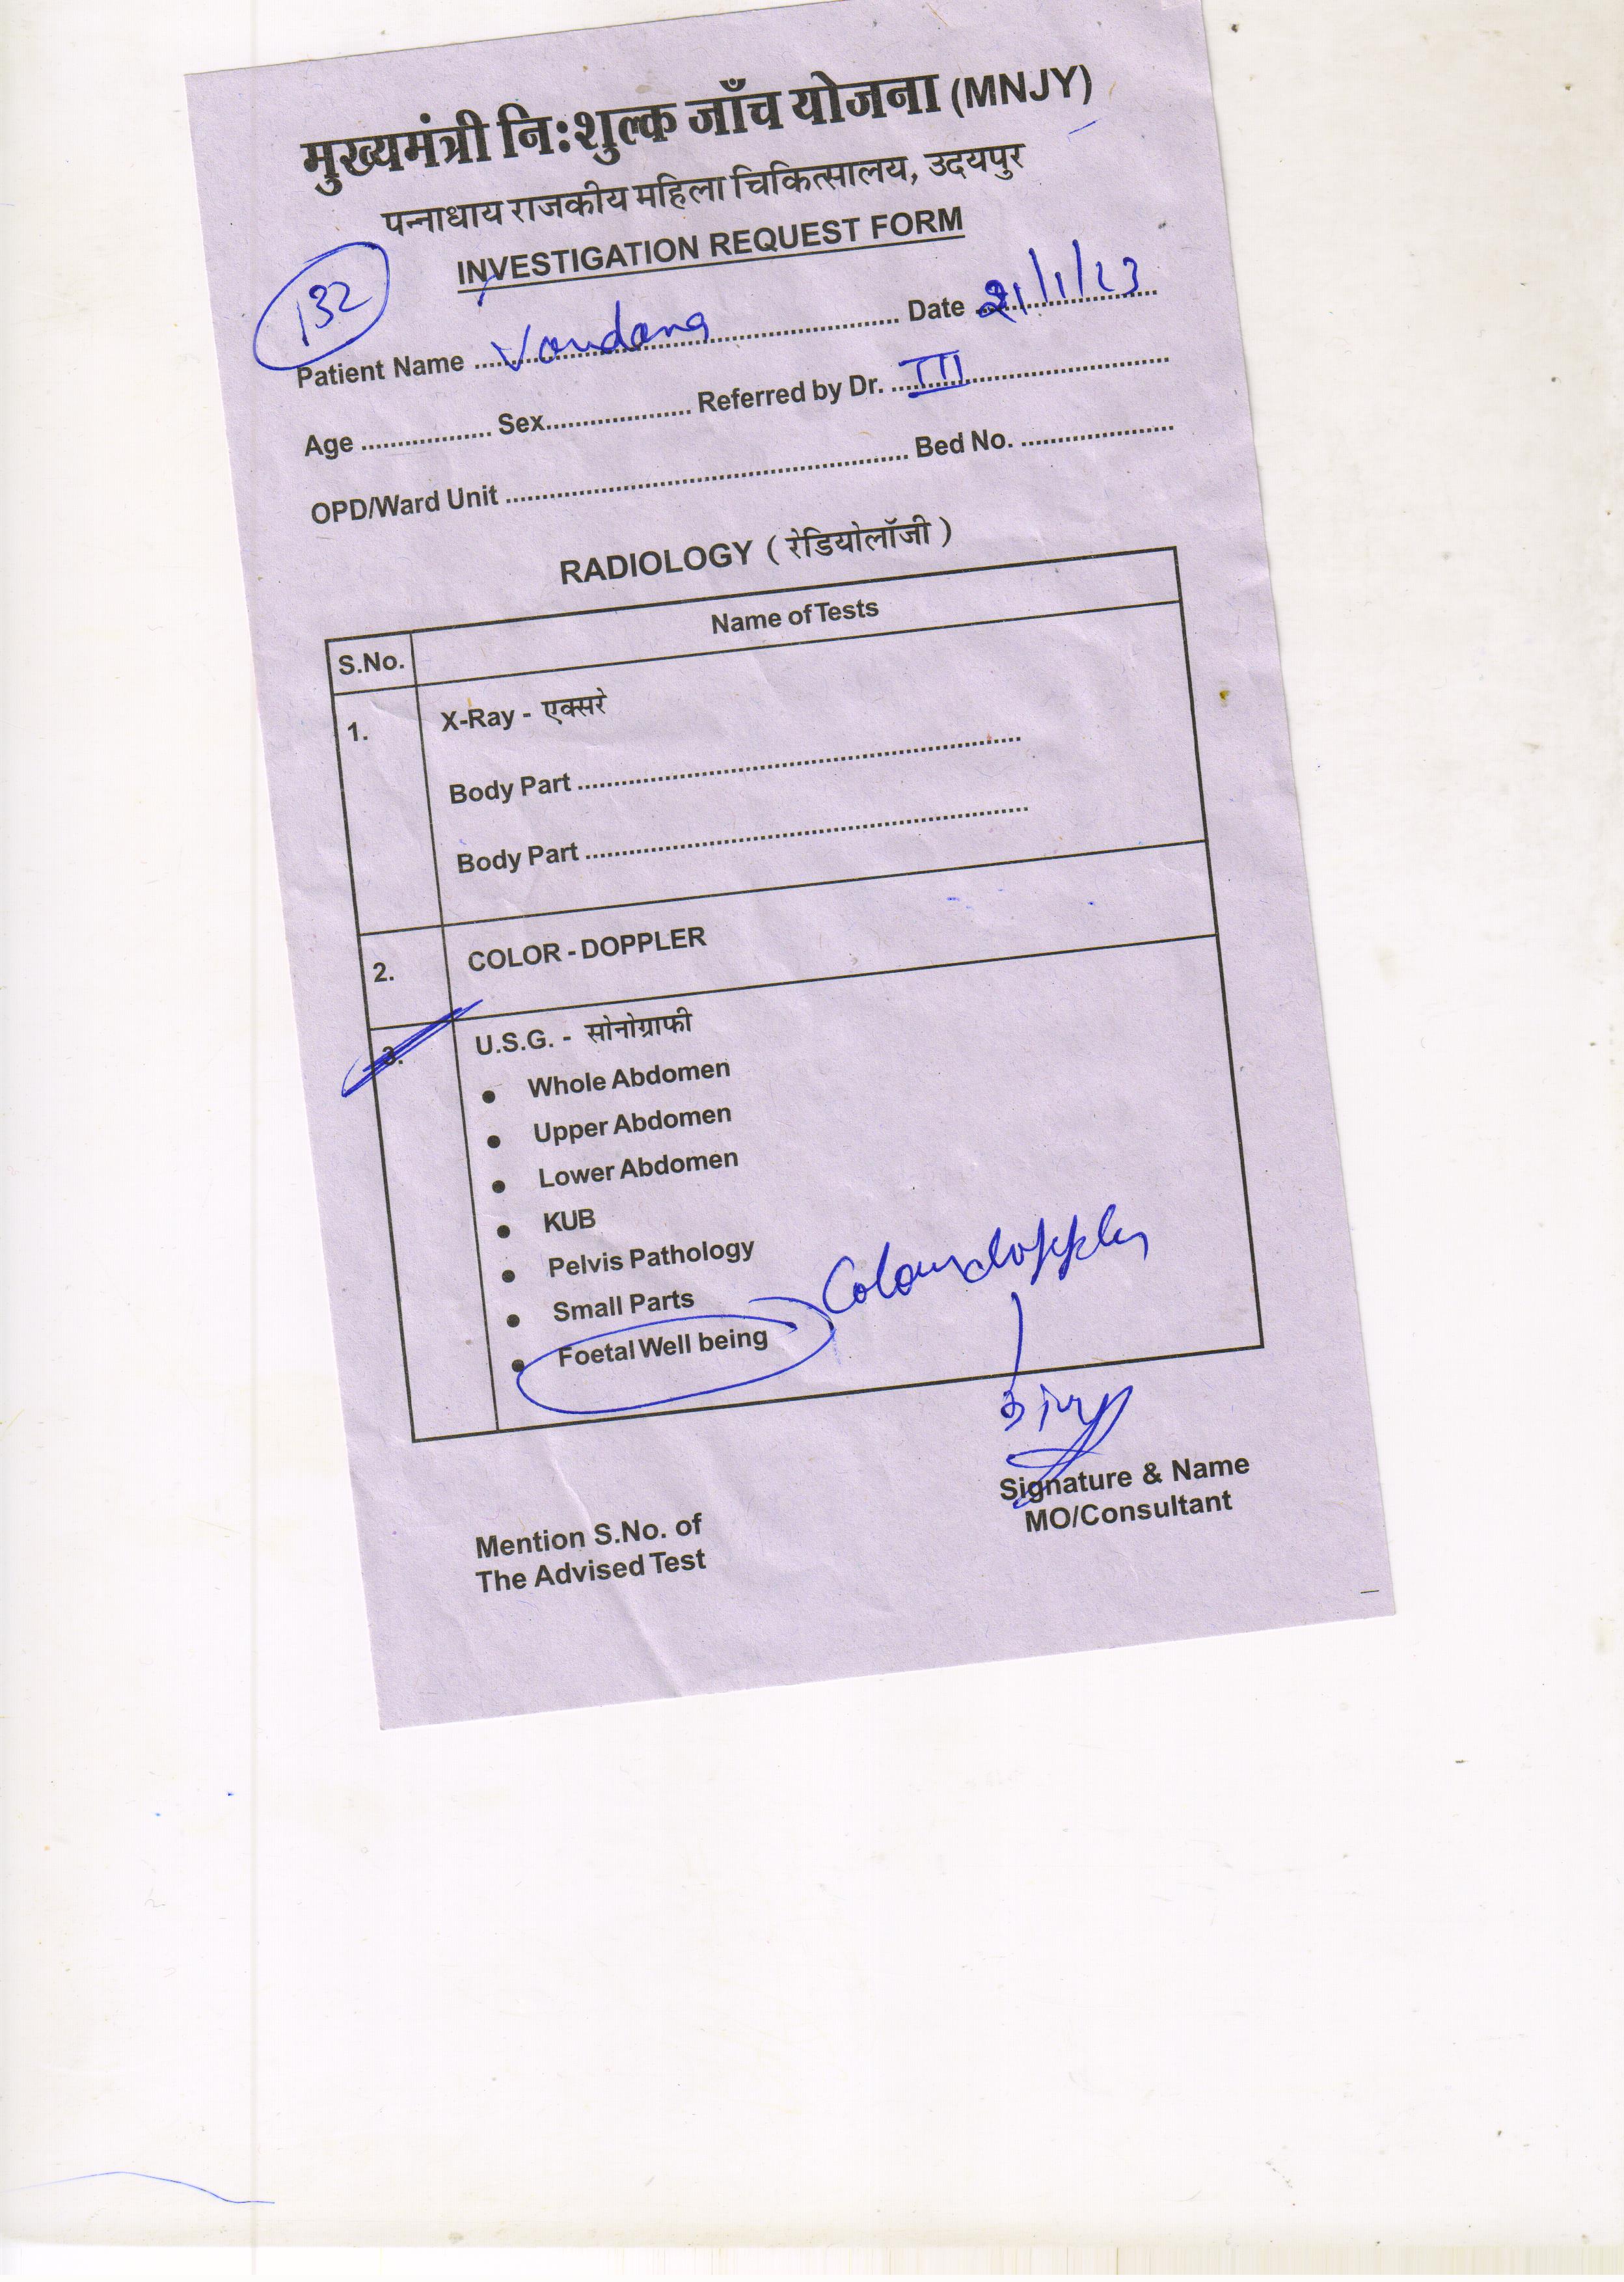 मुख्यमंत्री निःशुल्क जाँच योजना (MNJY)
पन्नाधाय राजकीय महिला चिकित्सालय, उदयपुर
INVESTIGATION REQUEST FORM
132
Patient Name ............ Vandana ............ Date 21/1/23
Age .................. Sex.................... Referred by Dr. III
OPD/Ward Unit ........................................................ Bed No. .....................
RADIOLOGY ( रेडियोलॉजी )
S.No. Name of Tests
1. X-Ray - एक्सरे
Body Part .............................................................
Body Part .............................................................
2. COLOR - DOPPLER
3. U.S.G. - सोनोग्राफी
• Whole Abdomen
• Upper Abdomen
• Lower Abdomen
• KUB
• Pelvis Pathology
• Small Parts
• Foetal Well being Colour doppler
Signature & Name
MO/Consultant
Mention S.No. of
The Advised Test